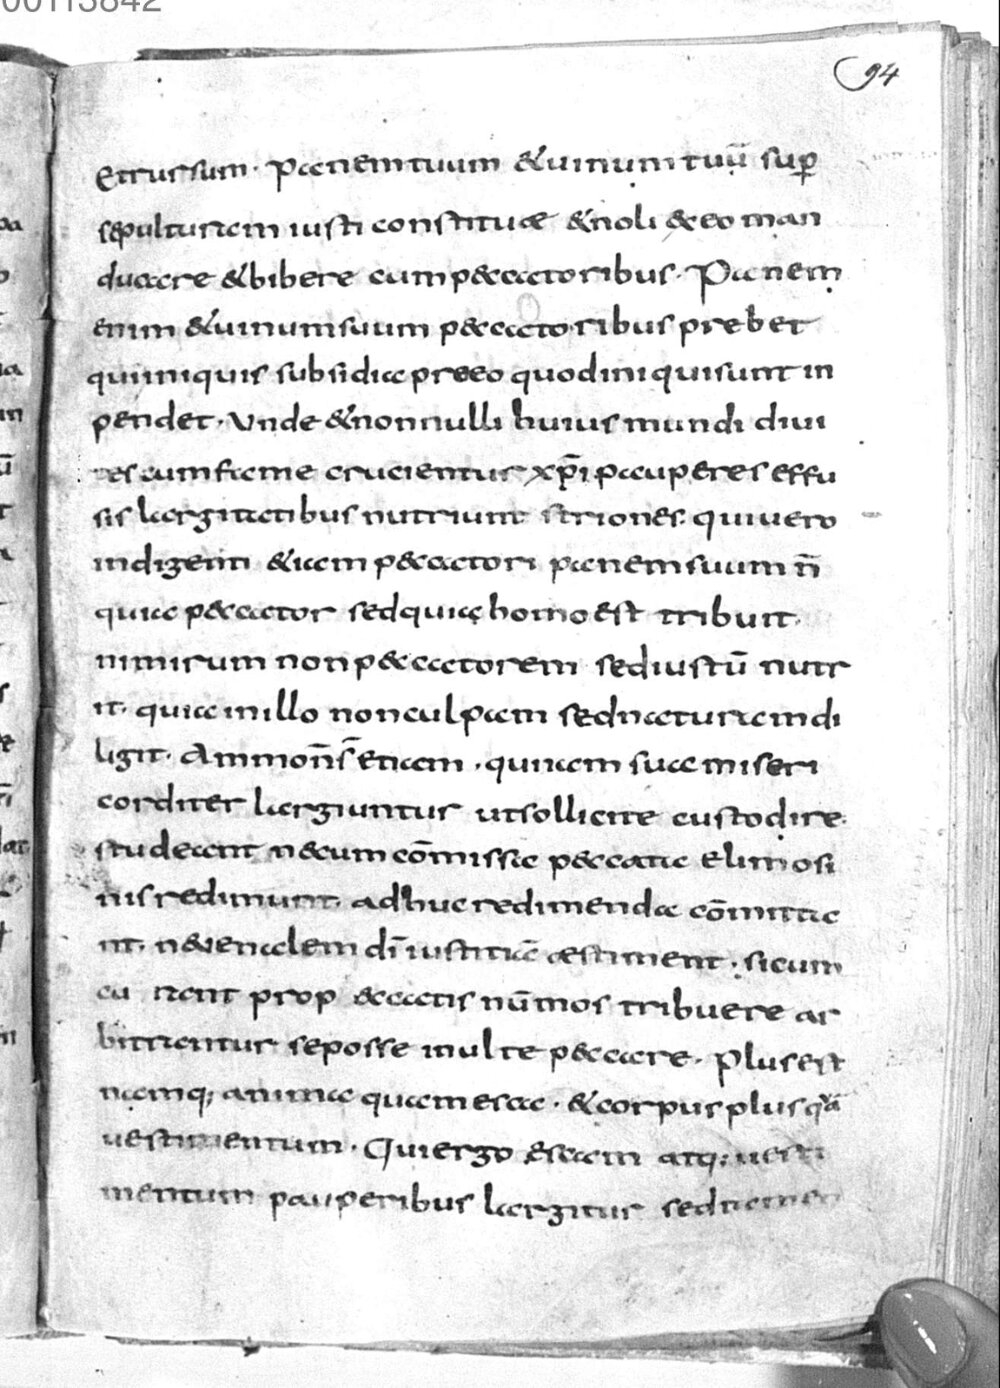 00113842
94
Et rursum · Panem tuum & uinum tuū sup̱
sepulturam iusti constitue & noli & eo man
ducare & bibere cum p&catoribus · Panem
enim & uinum suum p&catoribus prebet
qui iniquis subsidia pro eo quod iniqui sunt in
pendet · Unde & nonnulli huius mundi diui
tes cum fame crucientur xp̄i pauperes effu
sis largitatibus nutriunt striones qui uero
indigenti &iam p&catori panem suum n̄
quia p&cator sed quia homo est tribuit.
nimirum non p&catorem sed iustū nutr
it. quia in illo non culpam sed naturam di
ligit · Ammon̄s̄ etiam · qui iam sua miseri
corditer largiuntur ut sollicite custodire
studeant n& cum cōmissa peccata elimosi
nis redimunt. adhuc redimenda cōmitta
nt. n& uenalem dī iustitiā estiment · si cum
cu rant prop &catis nūmos tribuere ar
bitrantur se posse inulte p&care · Plus est
namq; anima quam esca · & corpus plus quā
uestimentum · Qui ergo escam atq; uesti
mentum pauperibus largitur sed tamen